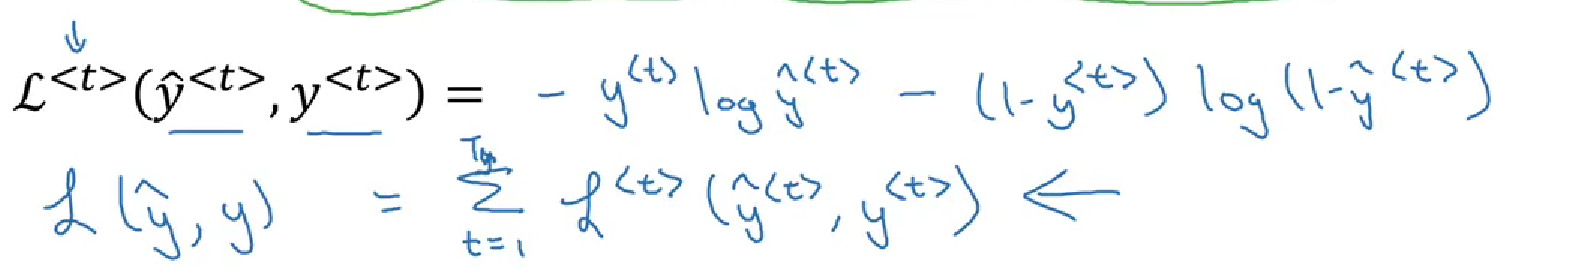 ℒ^{<t>}(ŷ^{<t>}, y^{<t>}) = - y^{<t>} log ŷ^{<t>} - (1-y^{<t>}) log (1-ŷ^{<t>})
ℒ(ŷ, y) = ∑_{t=1}^{T_y} ℒ^{<t>}(ŷ^{<t>}, y^{<t>}) ←